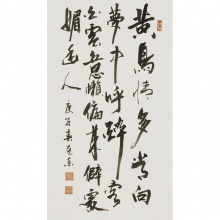 黄鳥情多常向
夢中呼醉客
白雲意懶偏來僻處
媚幽人